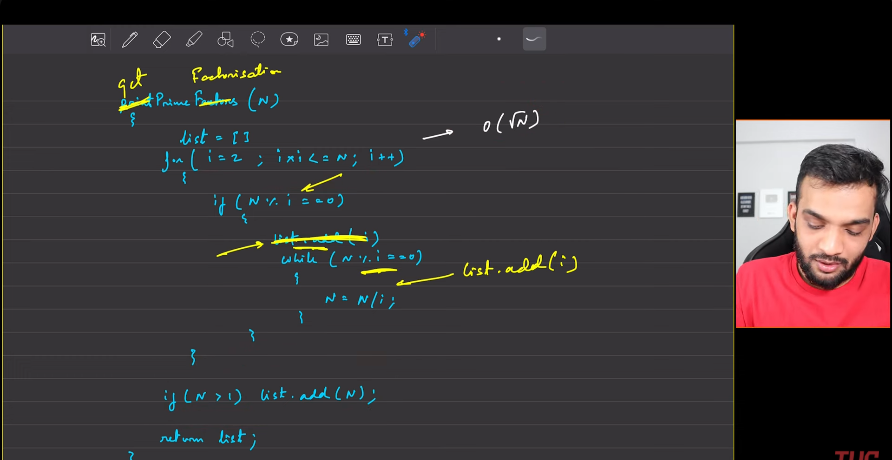 get Factorisation
printPrimeFactors (N)
{
list = [ ]
for( i = 2 ; i*i <= N; i++)
O(√N)
{
if (N % i == 0)
{
list.add(i)
while (N % i == 0)
list.add(i)
{
N = N/i;
}
}
}
if (N > 1) list.add(N);
return list;
}
TUF